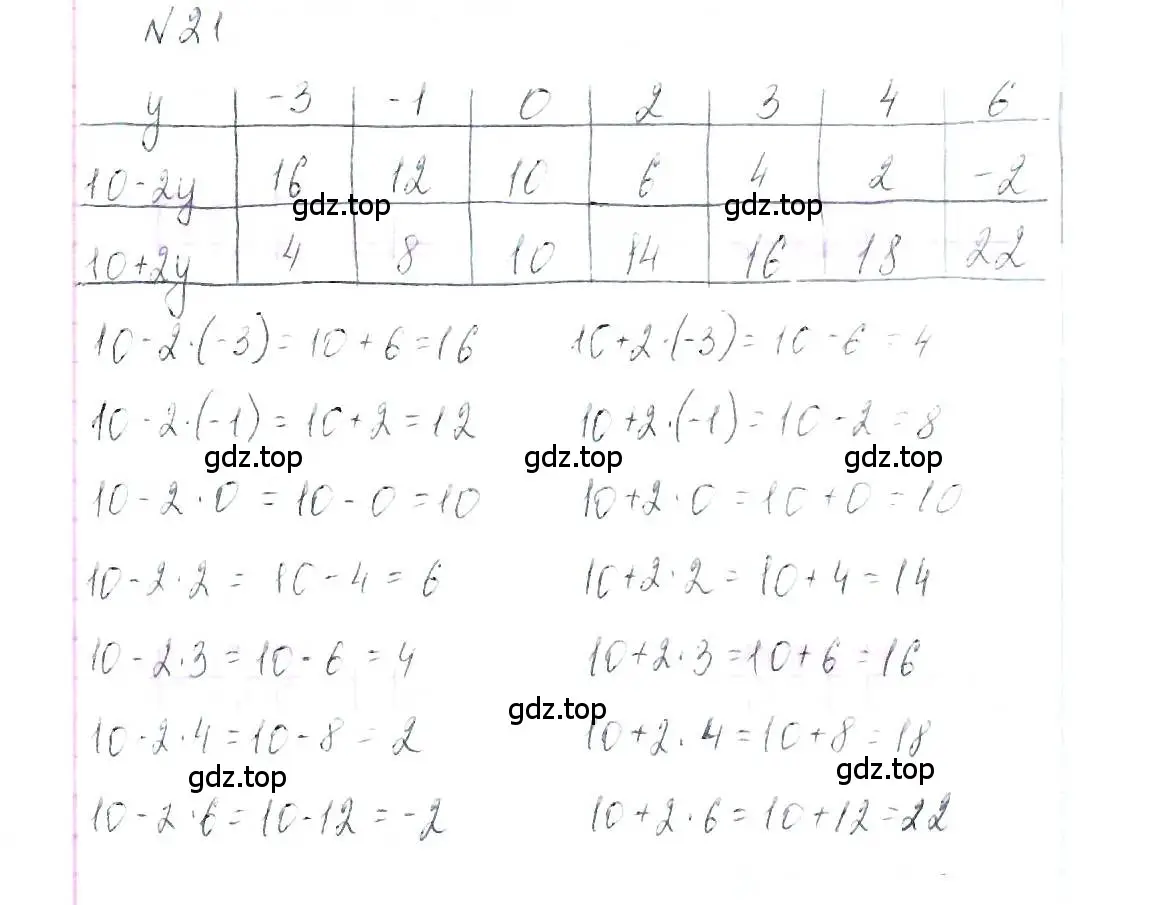 N 21
y -3 -1 0 2 3 4 6
10-2y 16 12 10 6 4 2 -2
gdz.top gdz.top
10+2y 4 8 10 14 16 18 22
10-2·(-3)=10+6=16 10+2·(-3)=10-6=4
10-2·(-1)=10+2=12 10+2·(-1)=10-2=8
gdz.top gdz.top gdz.top
10-2·0=10-0=10 10+2·0=10+0=10
10-2·2=10-4=6 10+2·2=10+4=14
10-2·3=10-6=4 10+2·3=10+6=16
gdz.top
10-2·4=10-8=2 10+2·4=10+8=18
gdz.top gdz.top
10-2·6=10-12=-2 10+2·6=10+12=22